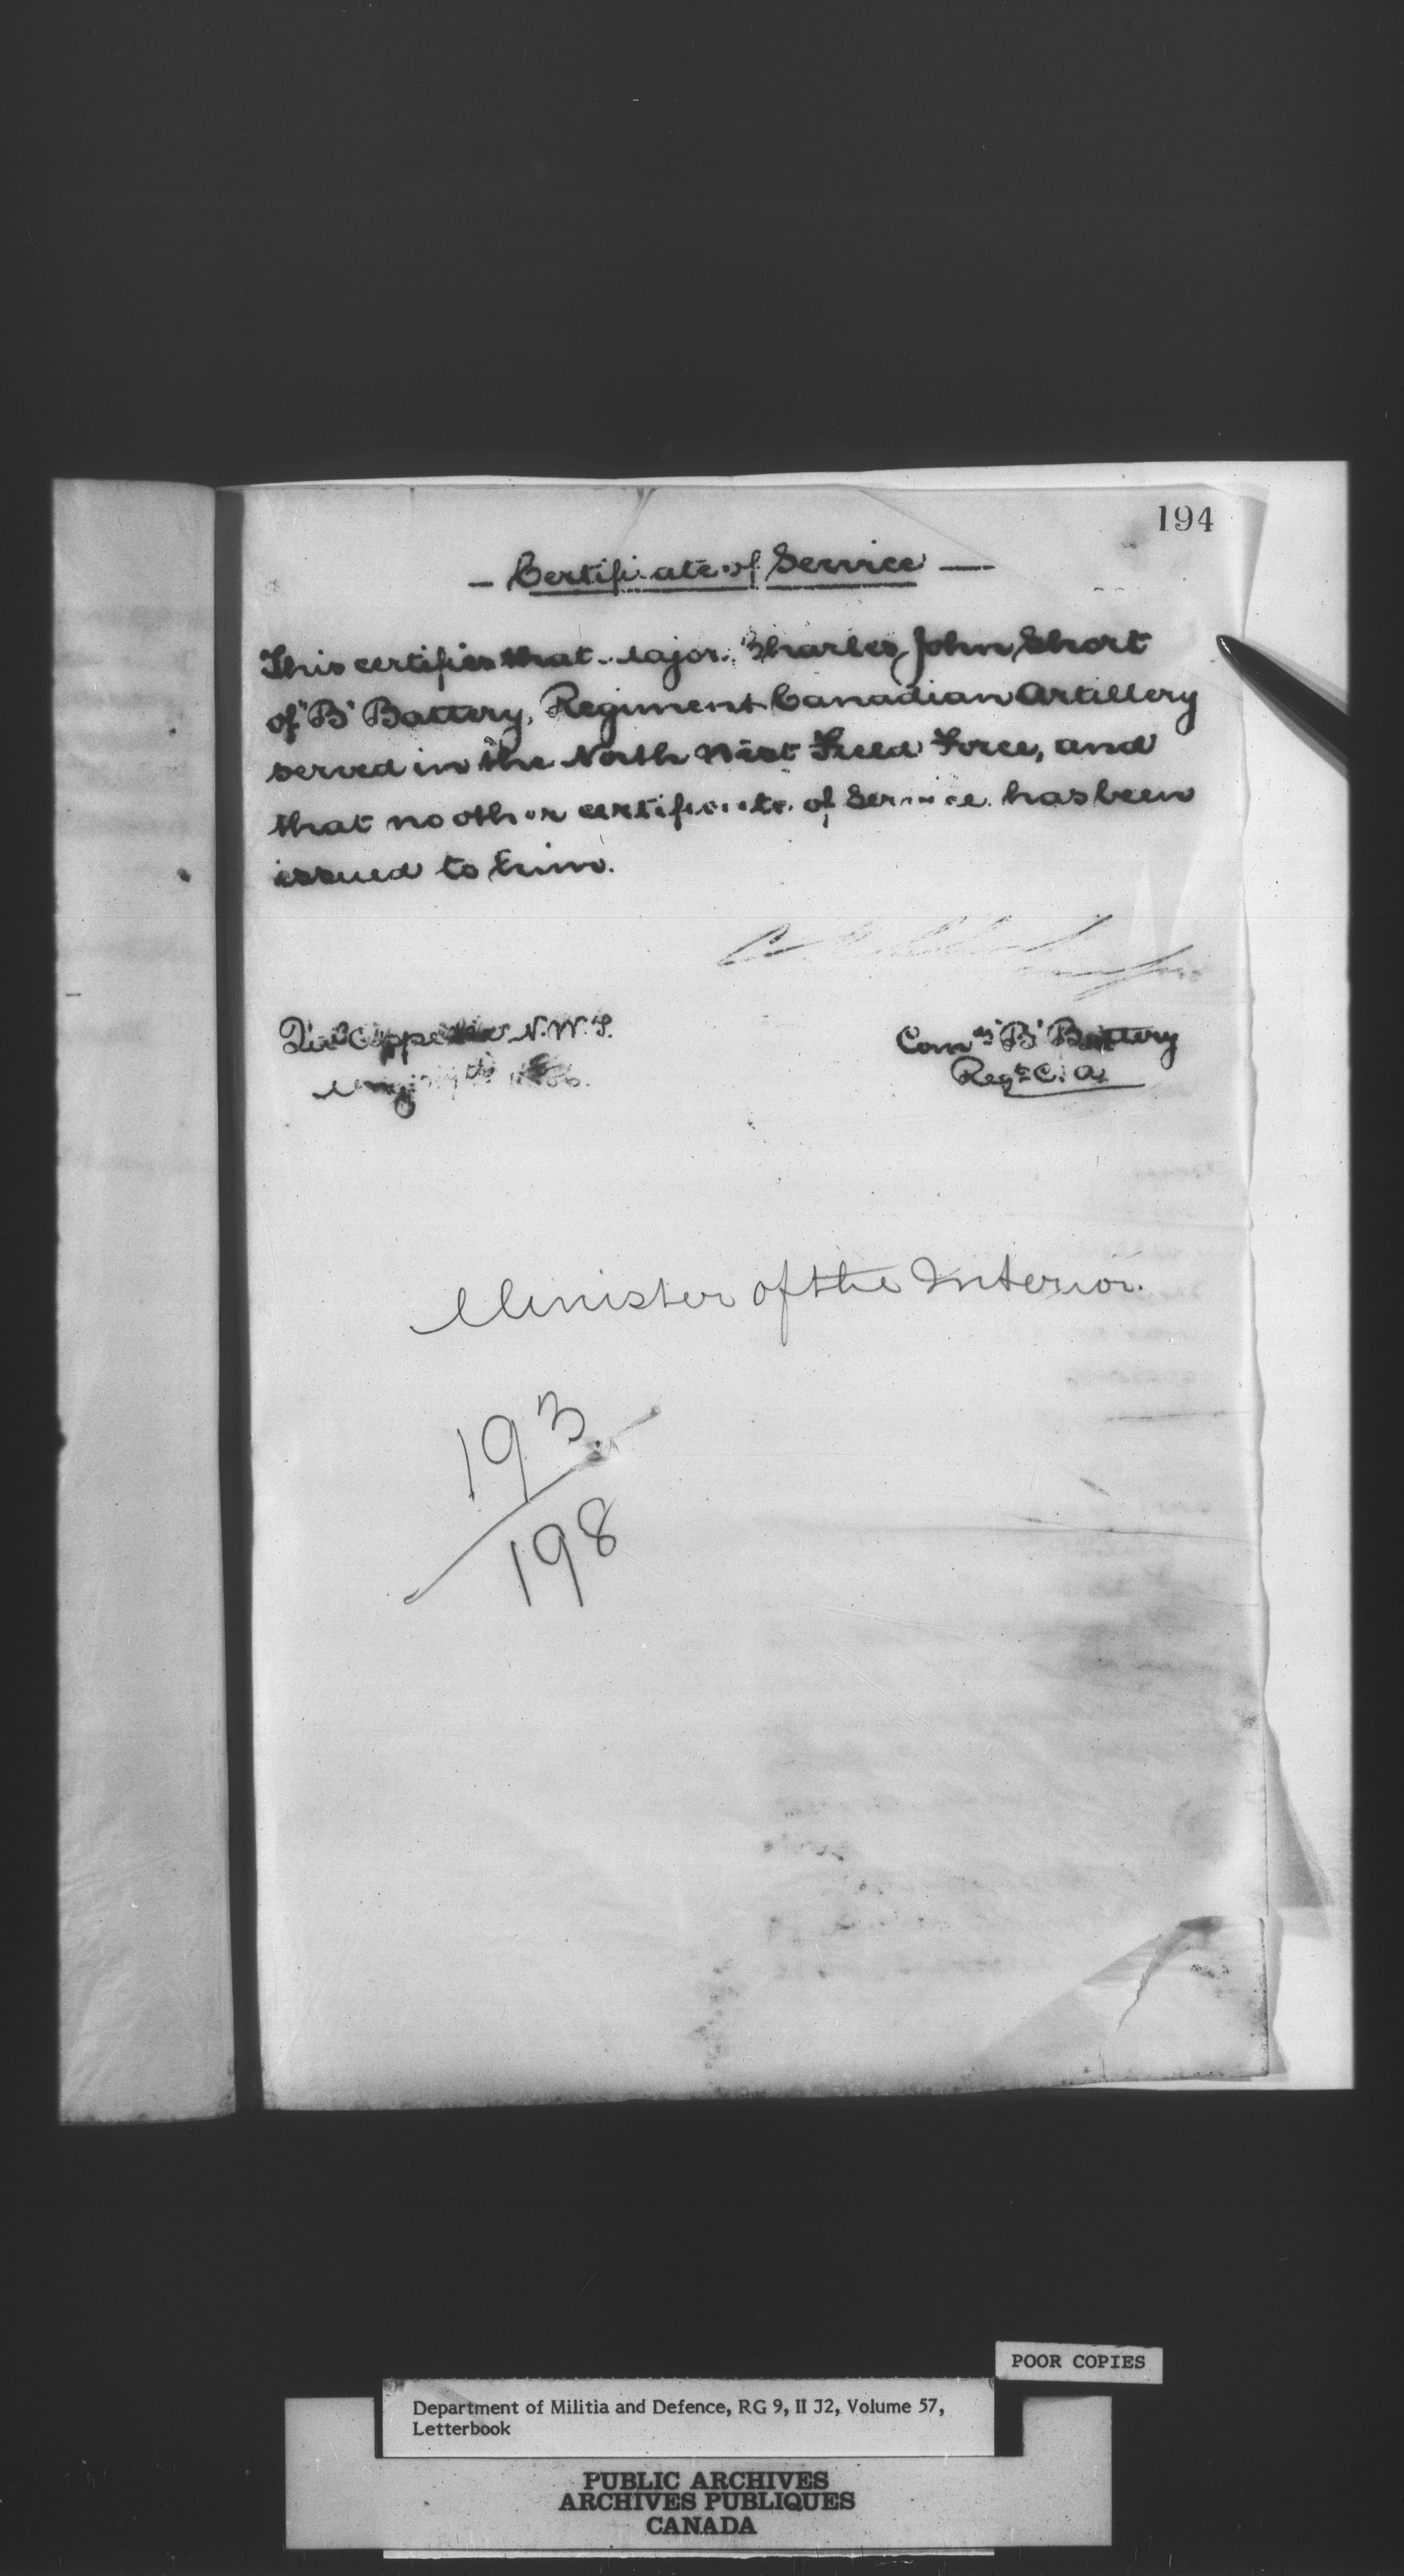 194
— Certificate of Service —
This certifies that Major Charles John Short
of "B" Battery, Regiment Canadian Artillery
served in the North West Field Force, and
that no other certificate of Service has been
issued to him.
N.W.T.
Com^dg "B" Battery
Reg^t C. A.
Minister of the Interior.
193
198
POOR COPIES
Department of Militia and Defence, RG 9, II J2, Volume 57,
Letterbook
PUBLIC ARCHIVES
ARCHIVES PUBLIQUES
CANADA